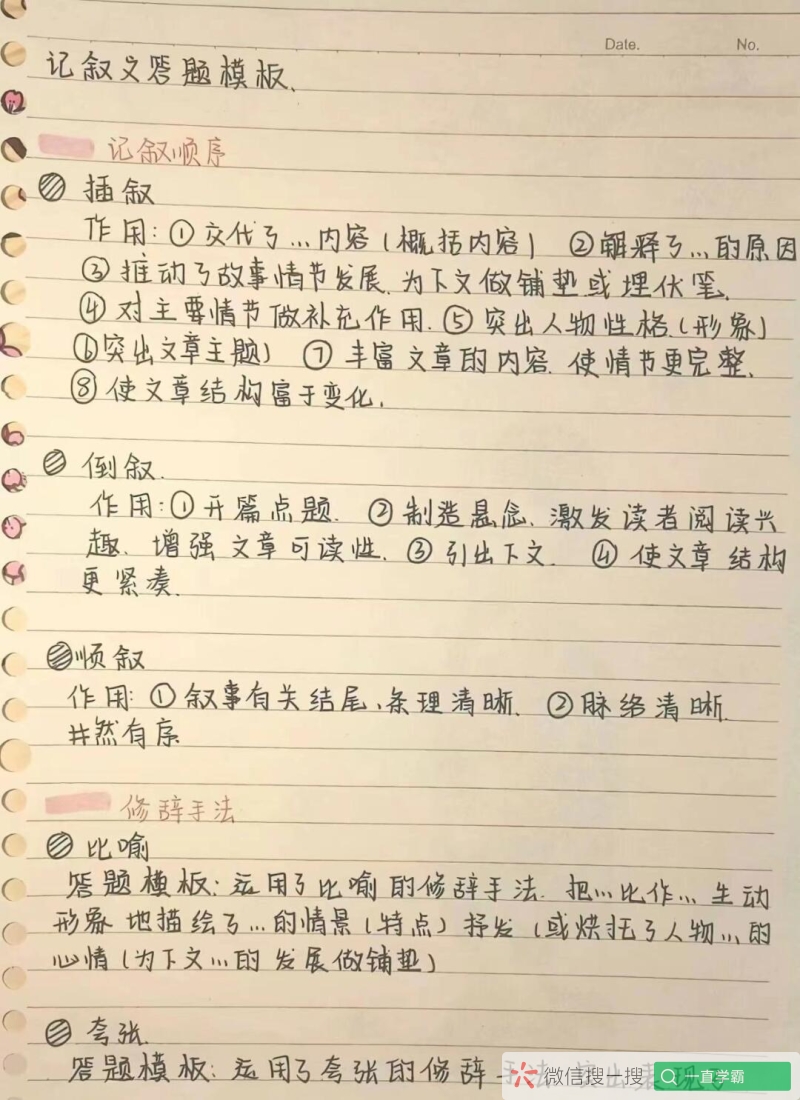 Date. No.
记叙文答题模板、
记叙顺序
插叙
作用:①交代了...内容(概括内容) ②解释了...的原因
③推动了故事情节发展.为下文做铺垫或埋伏笔.
④对主要情节做补充作用.⑤突出人物性格.(形象)
⑥突出文章主题) ⑦丰富文章的内容.使情节更完整.
⑧使文章结构富于变化.
倒叙.
作用:①开篇点题. ②制造悬念、激发读者阅读兴
趣、增强文章可读性.③引出下文. ④使文章结构
更紧凑.
顺叙
作用:①叙事有关结尾、条理清晰. ②脉络清晰.
井然有序
修辞手法
比喻
答题模板:运用了比喻的修辞手法.把...比作...生动
形象地描绘了...的情景(特点)抒发(或烘托了人物...的
心情(为下文...的发展做铺垫)
夸张.
答题模板:运用了夸张的修辞手法.突出表现了
微信搜一搜 一直学霸